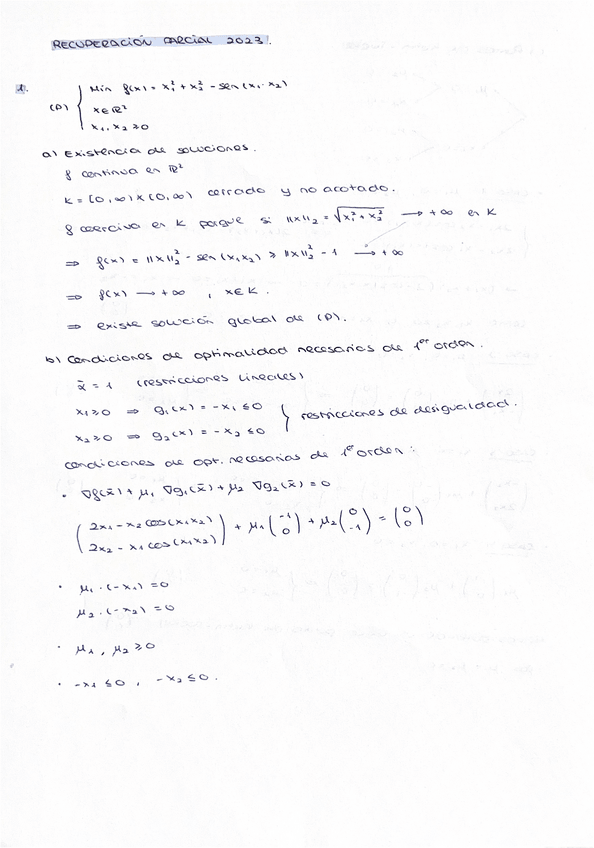 RECUPERACIÓN PARCIAL 2023.
1.
(P) { Min f(x) = x₁² + x₂² - sen(x₁·x₂)
x ∈ ℝ²
x₁, x₂ ≥ 0
a) Existencia de soluciones.
f continua en ℝ²
K = [0, ∞) x [0, ∞) cerrado y no acotado.
f coerciva en K porque si ||x||₂ = √(x₁² + x₂²) → +∞ en K
⇒ f(x) = ||x||₂² - sen(x₁x₂) ≥ ||x||₂² - 1 → +∞
⇒ f(x) → +∞ , x ∈ K.
⇒ existe solución global de (P).
b) Condiciones de optimalidad necesarias de 1er orden.
α̃ = 1 (restricciones lineales)
x₁ ≥ 0 ⇒ g₁(x) = -x₁ ≤ 0
x₂ ≥ 0 ⇒ g₂(x) = -x₂ ≤ 0 } restricciones de desigualdad.
condiciones de opt. necesarias de 1er orden:
· ∇f(x̄) + μ₁ ∇g₁(x̄) + μ₂ ∇g₂(x̄) = 0
(2x₁ - x₂ cos(x₁x₂) ; 2x₂ - x₁ cos(x₁x₂)) + μ₁ (-1 ; 0) + μ₂ (0 ; -1) = (0 ; 0)
· μ₁ · (-x₁) = 0
μ₂ · (-x₂) = 0
· μ₁, μ₂ ≥ 0
· -x₁ ≤ 0 , -x₂ ≤ 0.